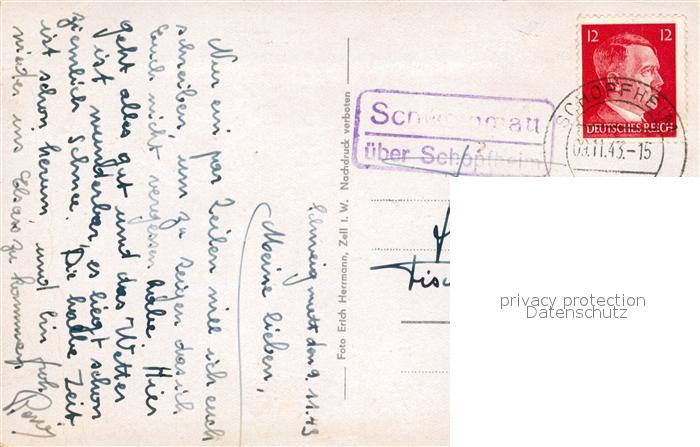 Schweigmatt den 9.11.43
Meine lieben,
Nur ein par Zeilen will ich euch
schreiben, um zu zeigen das ich
Euch nicht vergessen habe. Hier
geht alles gut und das Wetter
ist wunderbar, es liegt schon
ziemlich Schnee. Die halbe Zeit
ist schon herum und bin froh
wieder im Elsass zu kommen.
Foto Erich Herrmann, Zell i. W. Nachdruck verboten
Schweigmatt
über Schopfheim
12 12
DEUTSCHES REICH
SCHOPFHE
09.11.43.-15
privacy protection
Datenschutz